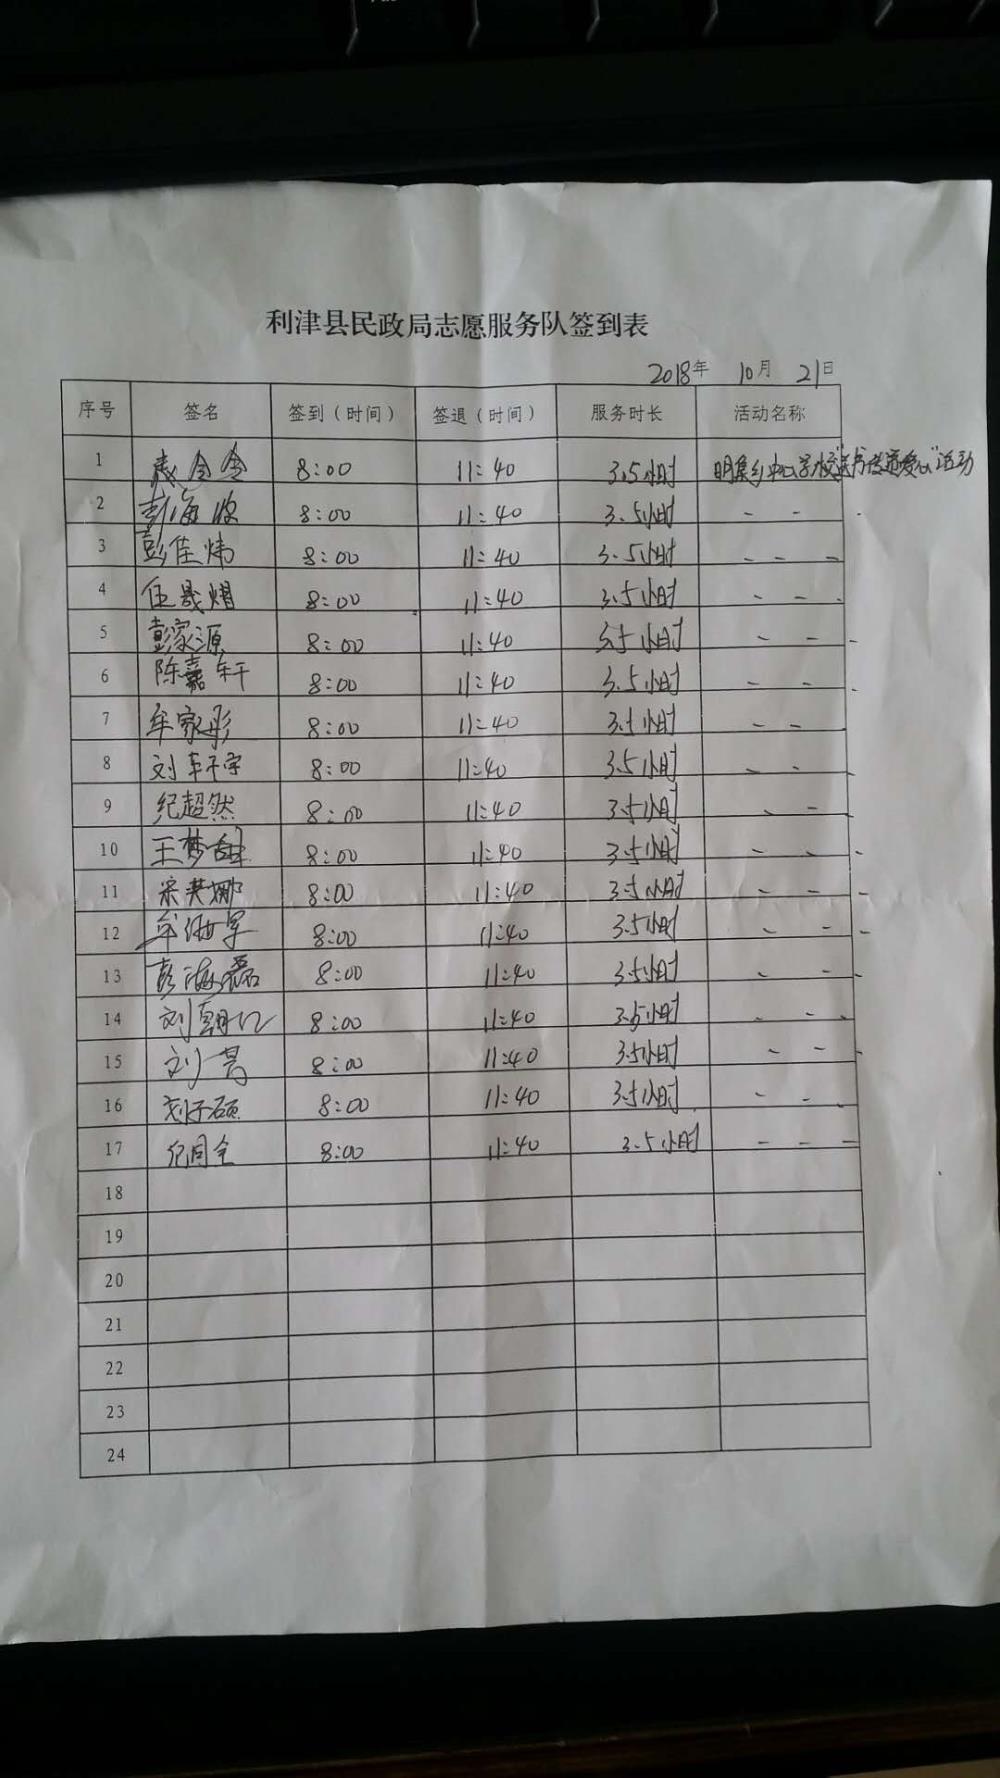 利津县民政局志愿服务队签到表
2018年 10月 21日
序号 签名 签到（时间） 签退（时间） 服务时长 活动名称
1 8:00 11:40 3.5小时 明集乡中心学校"送书传递爱心"活动
2 彭海波 8:00 11:40 3.5小时 - - -
3 彭佳炜 8:00 11:40 3.5小时 - - -
4 伍晟熠 8:00 11:40 3.5小时 - - -
5 彭家源 8:00 11:40 3.5小时 - - -
6 陈嘉轩 8:00 11:40 3.5小时 - - -
7 牟家彤 8:00 11:40 3.5小时 - -
8 刘轩宇 8:00 11:40 3.5小时 - - -
9 纪超然 8:00 11:40 3.5小时 - -
10 王梦甜 8:00 11:40 3.5小时 - - -
11 宋英娜 8:00 11:40 3.5小时 - - -
12 8:00 11:40 3.5小时 - - -
13 彭海磊 8:00 11:40 3.5小时 - - -
14 8:00 11:40 3.5小时 - - -
15 8:00 11:40 3.5小时 - - -
16 刘子硕 8:00 11:40 3.5小时 - - -
17 8:00 11:40 3.5小时 - - -
18
19
20
21
22
23
24